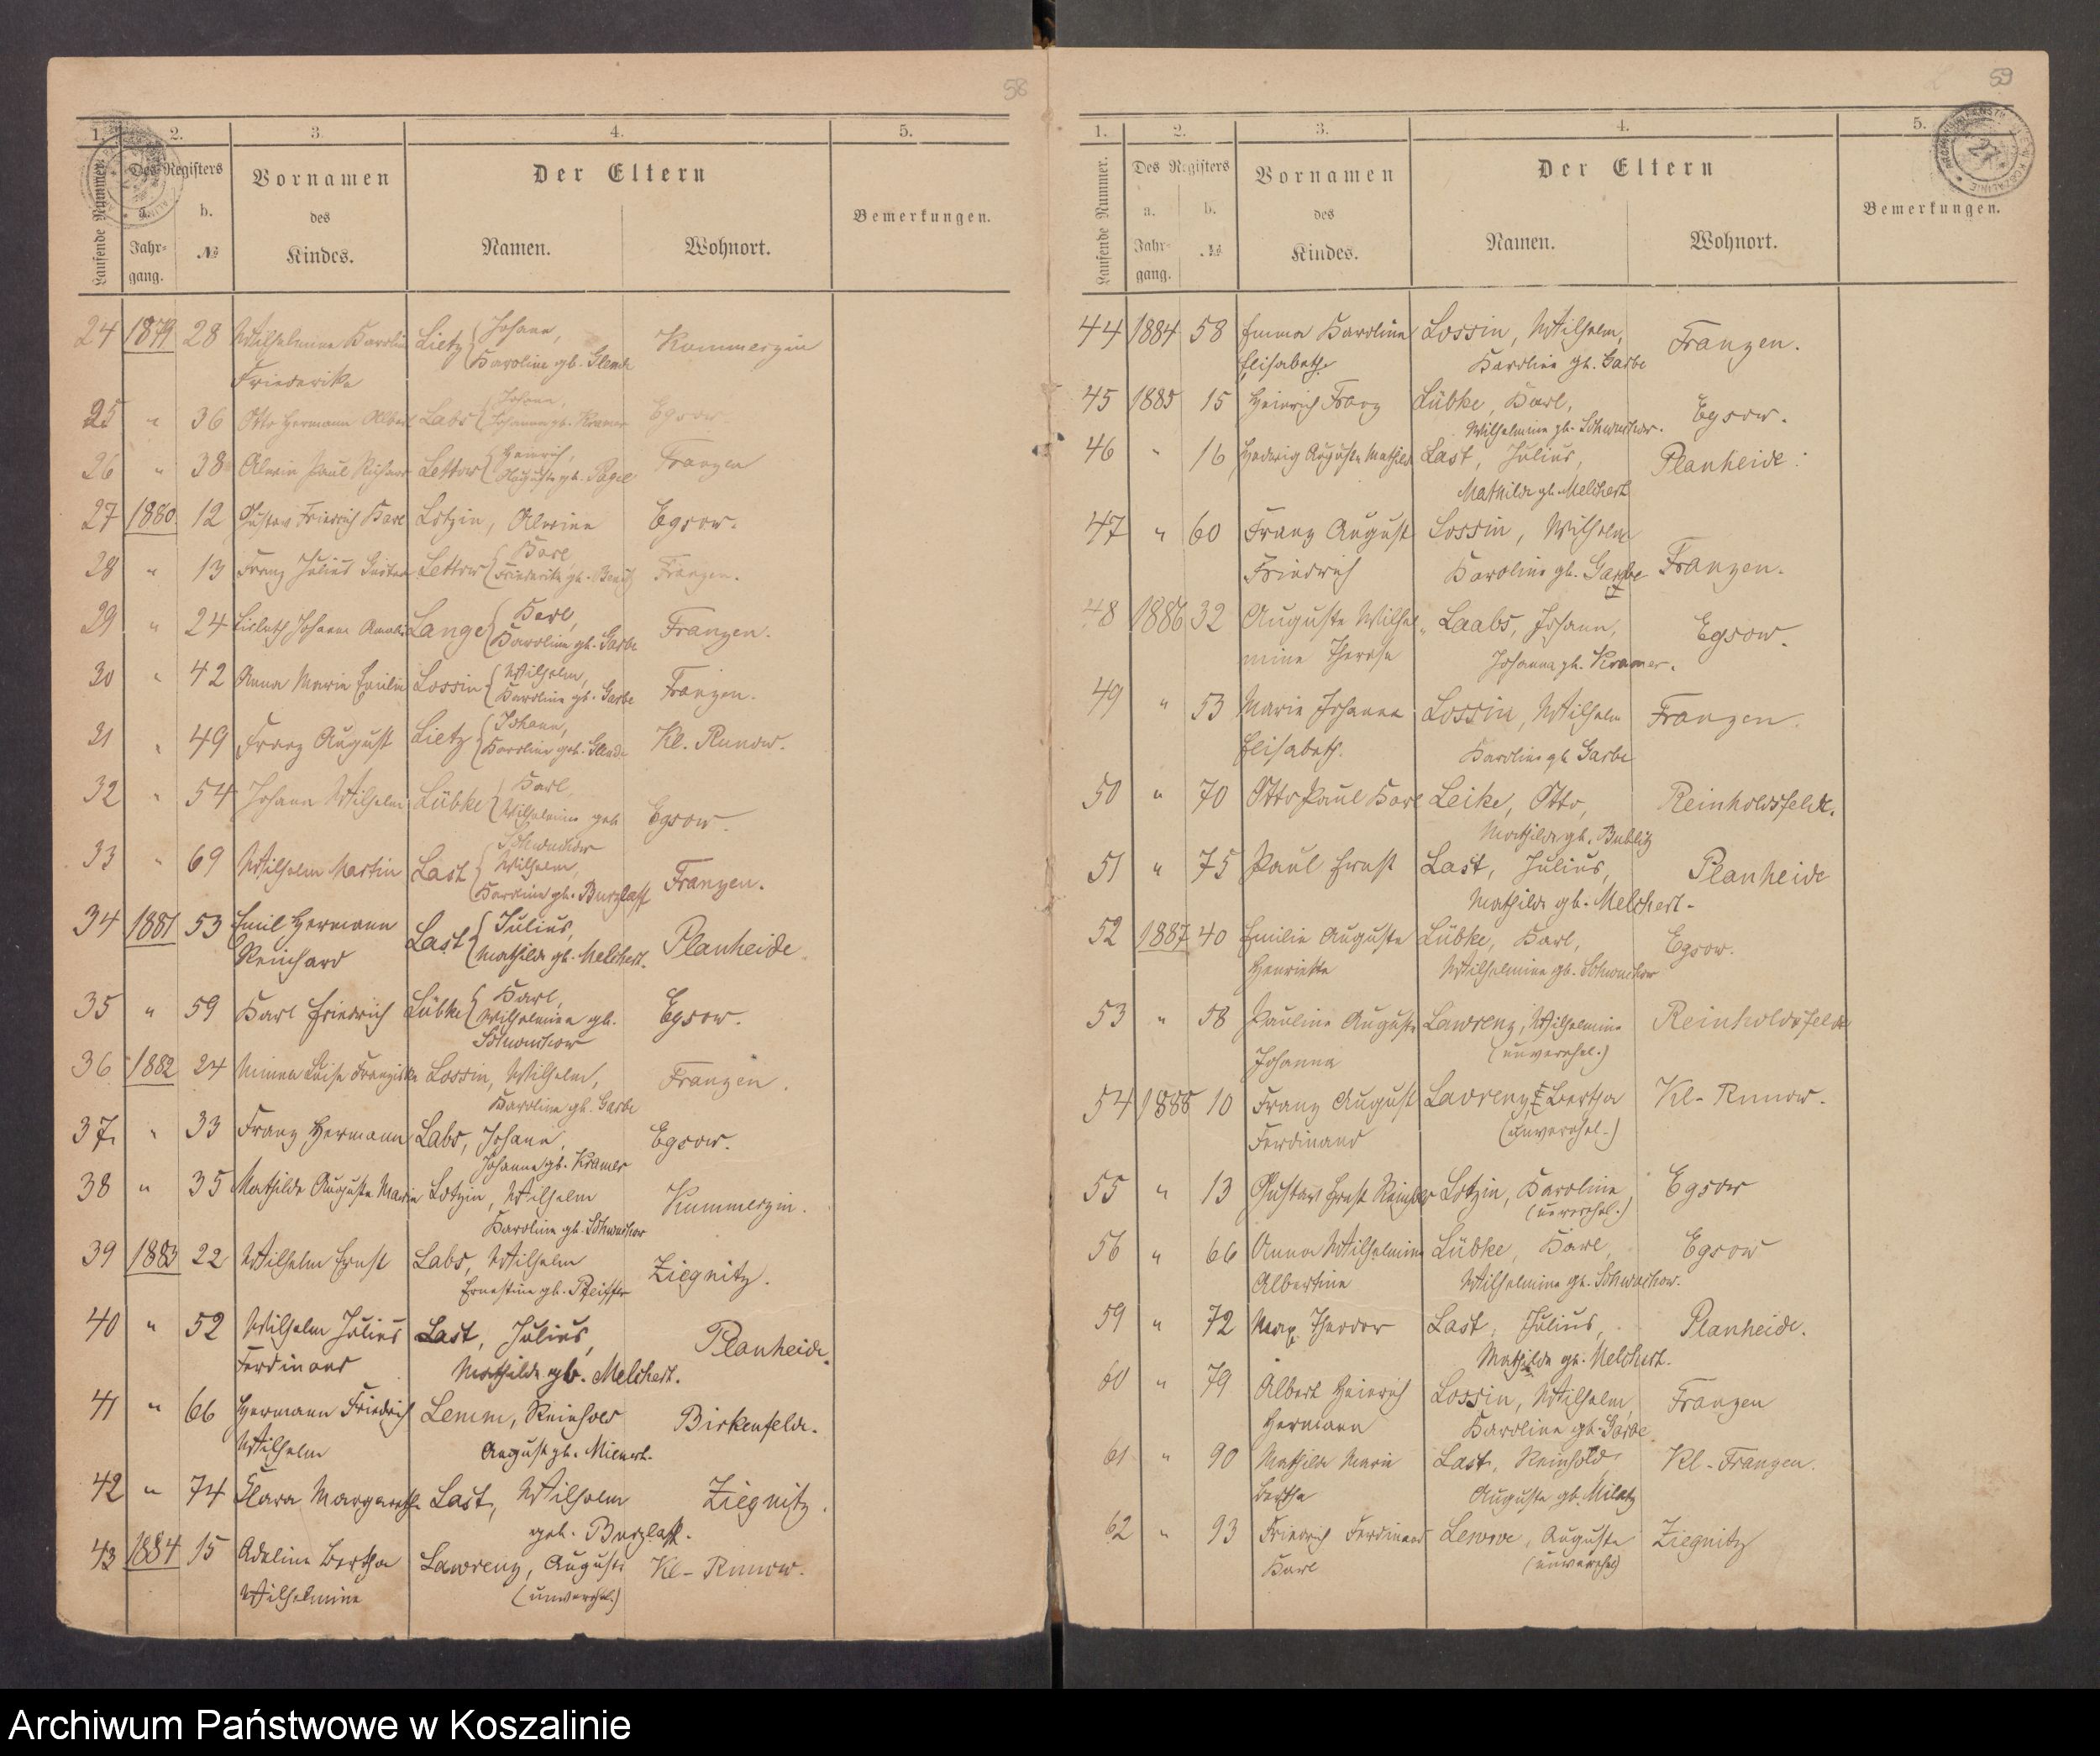 58
1. 2. 3. 4. 5.
Laufende Nummer.
Des Registers
a. b.
Jahrgang. №
Vornamen
des
Kindes.
Der Eltern
Namen. Wohnort.
Bemerkungen.
24 1879 28 Wilhelmine Karolin Lietz Johann, Kummerzin
Friederike Karoline gb. Glende
25 " 36 Otto Hermann Albert Labs Johann, Egsow
Johanna gb. Kramer
26 " 38 Alwin Paul Richard Lettow Heinrich, Franzen
Auguste gb. Pagel
27 1880 12 Gustav Friedrich Karl Lotzin, Alwine Egsow.
28 " 13 Franz Julius Gustav Lettow Karl, Franzen.
Friederike gb.
29 " 24 Johanna Lange Karl, Franzen.
Karoline gb. Garbe
30 " 42 Anna Marie Emilie Lossin Wilhelm, Franzen.
Karoline gb. Garbe
31 " 49 Franz August Lietz Johann, Kl. Runow.
Karoline geb. Glende
32 " 54 Johann Wilhelm Lübke Karl, Egsow.
Wilhelmine geb.
Schwuchow
33 " 69 Wilhelm Martin Last Wilhelm, Franzen.
Karoline gb. Burzlaff
34 1881 53 Emil Hermann Last Julius, Planheide.
Reinhard Mathilde gb. Melchert.
35 " 59 Karl Friedrich Lübke Karl, Egsow.
Wilhelmine gb.
Schwuchow
36 1882 24 Minna Luise Franziska Lossin, Wilhelm, Franzen.
Karoline gb. Garbe
37. " 33 Franz Hermann Labs, Johann, Egsow.
Johanna gb. Kramer
38 " 35 Mathilde Auguste Marie Lotzin, Wilhelm Kummerzin.
Karoline gb. Schwuchow
39 1883 22 Wilhelm Ernst Labs, Wilhelm Ziegnitz.
Ernestine gb. Pfeiffer
40 " 52 Wilhelm Julius Last, Julius, Planheide.
Ferdinand Mathilde gb. Melchert.
41 " 66 Hermann Friedrich Lemm, Reinhold Birkenfelde.
Wilhelm August gb. Mienert.
42 " 74 Klara Margarethe Last, Wilhelm Ziegnitz.
geb. Burzlaff.
43 1884 15 Adeline Bertha Lawrenz, Auguste Kl-Runow.
Wilhelmine (unverehel.)
59
1. 2. 3. 4. 5.
Laufende Nummer.
Des Registers
a. b.
Jahrgang. №
Vornamen
des
Kindes.
Der Eltern
Namen. Wohnort.
Bemerkungen.
44 1884 58 Emma Karoline Lossin, Wilhelm, Franzen.
Elisabeth Karoline gb. Garbe
45 1885 15 Heinrich Franz Lübke, Karl, Egsow.
Wilhelmine gb. Schwuchow.
46 " 16 Hedwig Auguste Mathilde Last, Julius, Planheide.
Mathilde gb. Melchert
47 " 60 Franz August Lossin, Wilhelm Franzen.
Friedrich Karoline gb. Garbe
48 1886 32 Auguste Wilhel- Laabs, Johann, Egsow.
mine Therese Johanna gb. Kramer.
49 " 53 Marie Johanna Lossin, Wilhelm Franzen.
Elisabeth. Karoline gb Garbe
50 " 70 Otto Paul Karl Leike, Otto, Reinholdsfelde.
Mathilde gb. Bublitz
51 " 75 Paul Ernst Last, Julius, Planheide
Mathilde gb. Melchert-
52 1887 40 Emilie Auguste Lübke, Karl, Egsow.
Henriette Wilhelmine gb. Schwuchow
53 " 58 Pauline Auguste Lawrenz, Wilhelmine Reinholdsfelde
Johanna (unverehel.)
54 1888 10 Franz August Lavrenz, Bertha Kl-Runow.
Ferdinand (unverehel.)
55 " 13 Gustav Ernst Reinhard Lotzin, Karoline, Egsow
(unverehel.)
56 " 66 Anna Wilhelmine Lübke, Karl, Egsow
Albertine Wilhelmine gb. Schwuchow.
59 " 72 Max Theodor Last, Julius, Planheide.
Mathilde gb. Melchert.
60 " 79 Albert Heinrich Lossin, Wilhelm, Franzen
Hermann Karoline gb. Garbe
61 " 90 Mathilde Marie Last, Reinhold Kl-Franzen.
Bertha Auguste gb. Milatz
62 " 93 Friedrich Ferdinand Auguste Ziegnitz
Karl (unverehel)
Archiwum Państwowe w Koszalinie